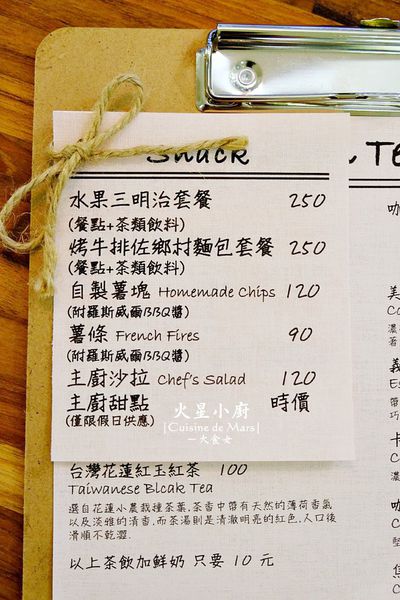 Snack
水果三明治套餐 250
(餐點+茶類飲料)
烤牛排佐鄉村麵包套餐 250
(餐點+茶類飲料)
自製薯塊 Homemade Chips 120
(附羅斯威爾BBQ醬)
薯條 French Fires 90
(附羅斯威爾BBQ醬)
主廚沙拉 Chef's Salad 120
主廚甜點 時價
(僅限假日供應)
火星小廚
|Cuisine de Mars|
一大食女
台灣花蓮紅玉紅茶 100
Taiwanese Blcak Tea
選自花蓮小農栽種茶葉,茶香中帶有天然的薄荷香氣
以及淡雅的清香,而茶湯則是清澈明亮的紅色,入口後
滑順不乾澀.
以上茶飲加鮮奶 只要 10 元
Te
咖
美
Co
濃
著
義
Es
帶
巧
卡
Co
濃
咖
Co
堅
焦